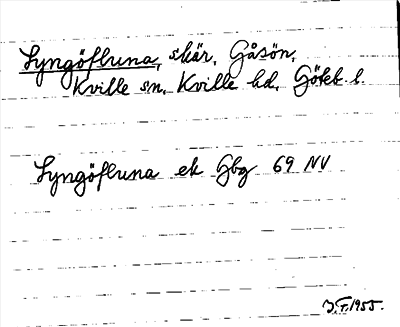 Lyngöfluna, skär, Gåsön,
Kville sn, Kville hd, Göteb l.
Lyngöfluna ek Gbg 69 NV
J.F. 1955.